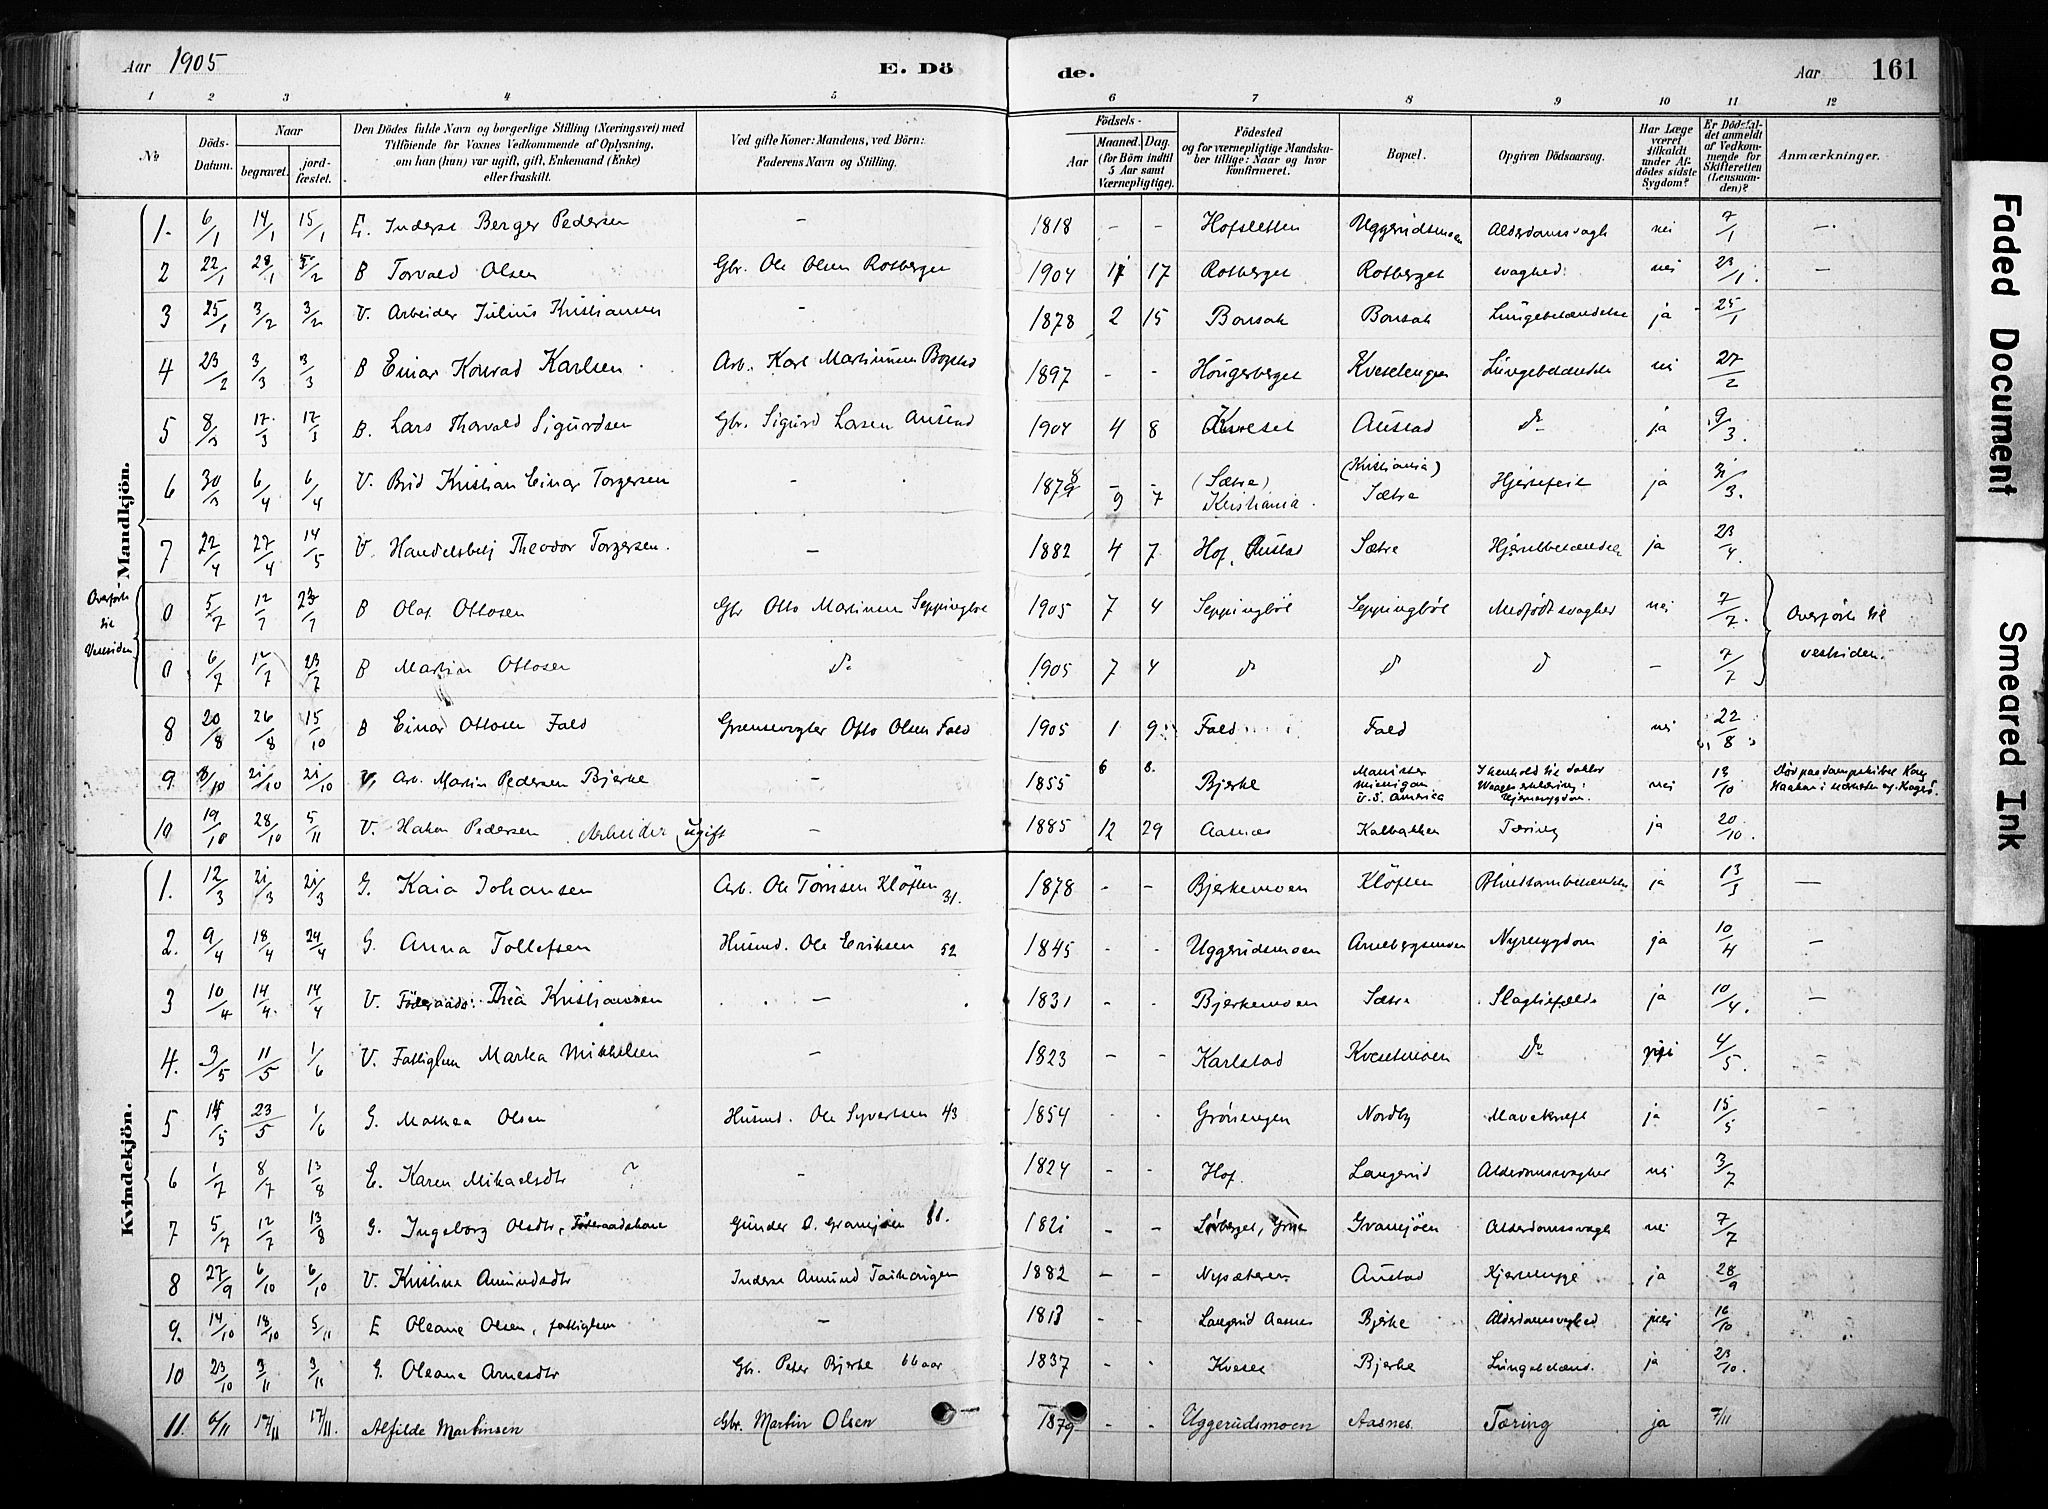 Aar 1905 E. Dö de. Aar 161
1 2 3 4 5 6 7 8 9 10 11 12
No Döds-Datum. Naar begravet. jordfæstet. Den Dödes fulde Navn og borgerlige Stilling (Næringsvei) med Tilföiende for Voxnes Vedkommende af Oplysning, om han (hun) var ugift, gift, Enkemand (Enke) eller fraskilt. Ved gifte Koner: Mandens, ved Börn: Faderens Navn og Stilling. Födsels- Aar Maaned. Dag. (for Börn indtil 5 Aar samt Værnepligtige). Födested og for værnepligtige Mandskaber tillige: Naar og hvor konfirmeret. Bopæl. Opgiven Dödsaarsag. Har Læge været tilkaldt under Afdödes sidste Sygdom? Er Dödsfaldet anmeldt af Vedkommende for Skifteretten (Lensmanden)? Anmærkninger.
Mandkjön.
1. 6/1 14/1 15/1 E. Inderst Berger Pedersen - 1818 - - Hofsletten Uggerudsmoen Alderdomssvagh nei 7/1 -
2 22/1 28/1 5/2 B Torvald Olsen Gbr. Ole Olsen Rotberget 1904 17 Rotberget Rotberget svaghed. nei 23/1. -
3 25/1 3/2 3/2 V. Arbeider Julius Kristiansen - 1878 2 15 Bonsak Bonsak Lungebetændelse ja 25/1
4 23/2 3/3 3/3 B Einar Konrad Karlsen Arb. Karl Martinsen Bogstad 1897 - - Hougerberget Kveselengen Lungebetændelse nei 27/2
5 8/3 17/3 17/3 B. Lars Thorvald Sigurdsen Gbr. Sigurd Larsen Austad 1904 4 8 Kveset Austad do ja 9/3.
6 30/3 6/4 6/4 V. Bud Kristian Einar Torgersen - 1878 9 7 (Sætre) Kristiania. (Kristiania) Sætre Hjertefeil ja 31/3.
7 22/4 27/4 14/5 V. Handelsbetj Theodor Torgersen. - 1882 4 7 Hof, Austad Sætre Hjertebetændelse ja 23/4.
Overført til Vestsiden
0 5/7 12/7 23/7 B Olaf Ottosen Gbr Otto Martinsen Seppingböl 1905 7 4 Seppingböl Seppingböl Medfødt svaghed nei 7/7. Overført til
0 6/7 12/7 23/7 B Martin Ottosen do 1905 7 4 do do do - 7/7 vestsiden.
8 20/8 26/8 15/10 B Einar Ottosen Fald Grænsevogter Otto Olsen Fald 1905 1 9 Fald Fald nei 22/8
9. 8/10 21/10 21/10 V. Arb. Martin Pedersen Bjerke - 1855 6 8. Bjerke Manister Michigan U.S. America I henhold til doktor Waages erklæring: Hjernesygdom. nei 13/10 Död paa dampskibet Kong Haakon i nærheden af Kragerö.
10 19/10 28/10 5/11 V. Hakon Pedersen Arbeider ugift - 1885 12 29 Aasnes Kalbakken Tæring ja 20/10.
Kvindekjön.
1. 12/3 21/3 21/3 G. Kaia Johansen Arb. Ole Tønsen Klöften 31. 1878 - - Bjerkemoen Klöften Blindtarmbetændelse ja 13/3 -
2. 9/4 18/4 24/4 G. Anna Tollefsen Husmd. Ole Eriksen 52 1845 - - Uggerudsmoen Arnebergsmoen Nyresygdom ja 10/4 -
3 10/4 14/4. 14/4 V. Föderaads. Thea Kristiansen - 1831 - - Bjerkemoen Sætre Slagtilfælde ja 10/4. -
4. 3/5 11/5 1/6 V. Fattiglem Marta Mikkelsen - 1823 - - Karlstad Kvesetmoen do nei 4/5. -
5 14/5 23/5 1/6 G. Mathea Olsen Husmd. Ole Syvertsen 43 1854 - - Grönengen Nordby Mavekræft ja 15/5 -
6 1/7 8/7 13/8 E. Karen Mikaelsdtr ? - 1824 - - Hof. Langerud Alderdomssvaghed nei 3/7
7 5/7 12/7 13/8 G. Ingeborg Olsdtr, Föderaadskone Gunder O. Gransjöen 81. 1821 - - Sørberget, Grue Gransjöen Alderdomssvagh nei 7/7
8 27/9 6/10 6/10 V. Kristine Amundsdtr Inderst Amund Taihaugen 1882 - - Nysæteren. Austad Hjertesyge ja 28/9
9. 14/10 18/10 5/11 E Oleane Olsen, fattiglem - 1813 - - Langerud Aasnes Bjerke Alderdomssvaghed nei 16/10
10 23/10 3/11 3/11 G. Oleane Arnesdtr Gbr. Peter Bjerke 66 aar 1837 - - Kveset Bjerke Lungebetænd. ja 23/10.
11. 6/11 17/11 17/11. Alfilde Martinsen Gbr. Martin Olsen 1879 - - Uggerudsmoen Aasnes. Tæring ja 7/11
Faded Document
Smeared Ink